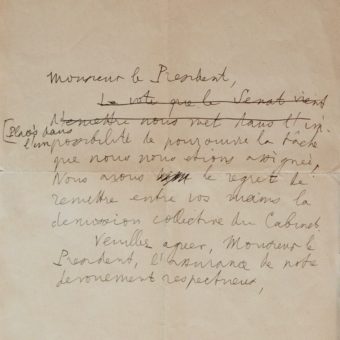 Monsieur le President,
Le vote que le Senat vient
d'emettre nous met dans l'im-
[Placés dans
l'im
possibilité de poursuivre la tâche
que nous nous etions assignée,
Nous avons le regret de
remettre entre vos mains la
demission collective du Cabinet.
Veuillez agreer, Monsieur le
President, l'assurance de notre
devouement respectueux,